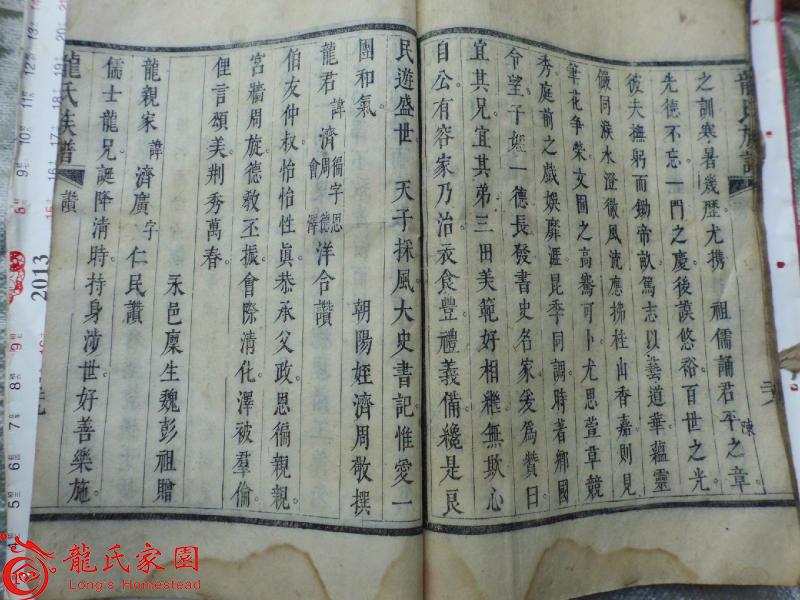 龍氏族譜
之訓寒暑幾歷尤携 祖儒誦君平之章
陳
先德不忘一門之慶後謨悠裕百世之光
彼夫撫躬而鋤帝畝篤志以藝道華蘊靈
儼同渙水澄微風流應拂桂山香嘉則見
筆花争榮文圃之高騫可卜尤思萱草競
秀庭前之戯娛靡涯昆季同調時著鄉國
令望子姪一德長發書史名家爰為贊曰
宜其兄宜其弟三田美範好相繼無欺心
自公有容家乃治衣食豐禮義備纔是良
民遊盛世 天子採風大史書記惟愛一
團和氣 朝陽姪濟周敬撰
龍君諱濟 徧周會 字恩德澤 洋合讚
伯友仲叔怡怡性眞恭承父政恩徧親親
宮牆周旋德教丕振會際清化澤被羣倫
俚言頌美荆秀萬春
永邑廩生魏彭祖贈
龍親家諱濟廣字仁民讚
儒士龍兄誕降清時持身涉世好善樂施
龍氏族譜 讚
2013
龍氏家園
Long's Homestead